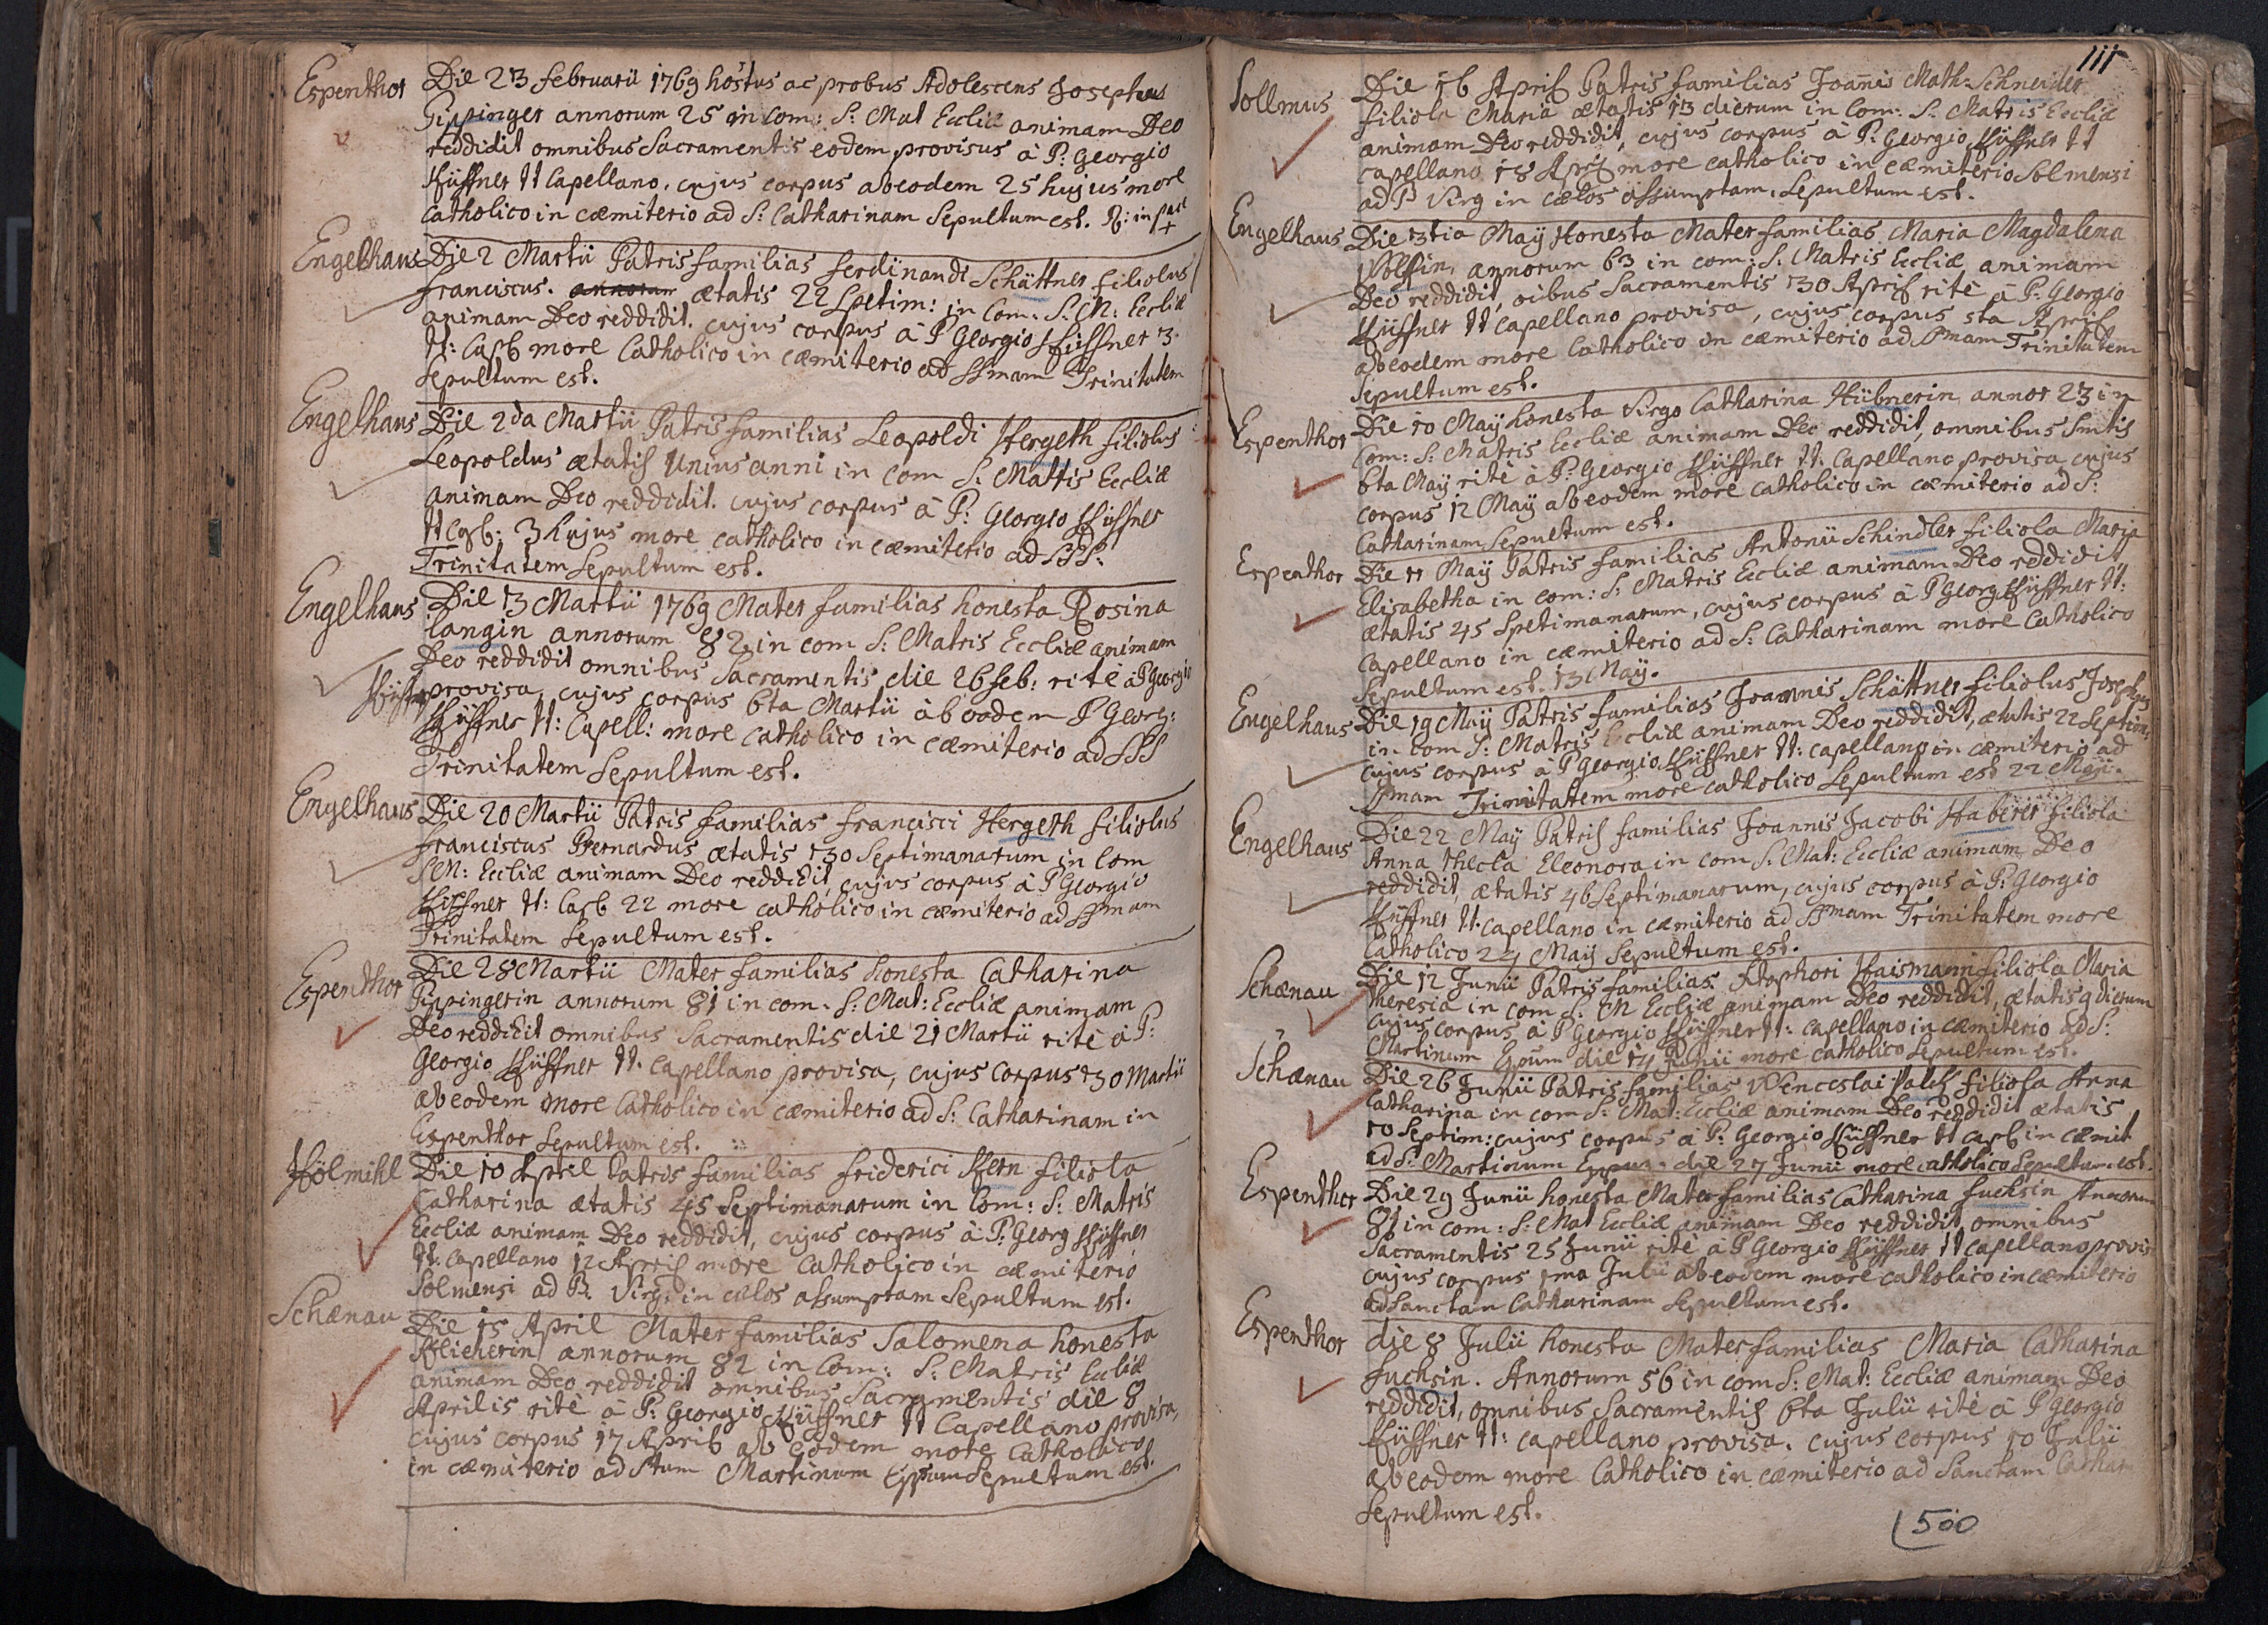 Espenthor Die 23 Februarii 1769 hostus ac probus Adolescens Josephus
Pippinger annorum 25 in Com: S: Mat Eccliæ animam Deo
reddidit omnibus Sacramentis eodem provisus à P: Georgio
Hüffner tt Capellano. cujus corpus ab eodem 25 hujus more
Catholico in cæmiterio ad S: Catharinam Sepultum est. R: in pace
Engelhaus Die 2 Martii Patris familias Ferdinandi Schättner filiolus
Franciscus. annorum ætatis 22 Sptim: in Com: S: M: Eccliæ
animam Deo reddidit. cujus corpus à P Georgio Hüffner 3.
tt: Capl more Catholico in cæmiterio ad SSmam Trinitatem
Sepultum est.
Engelhaus Die 2da Martii Patris familias Leopoldi Hergeth filiolus
Leopoldus ætatis Unius anni in Com S. Matris Eccliæ
animam Deo reddidit. cujus corpus à P: Georgio Hüffner
tt Capl: 3 hujus more catholico in cæmiterio ad SSS:
Trinitatem Sepultum est.
Engelhaus Die 3 Martii 1769 Mater familias honesta Rosina
Langin annorum 82 in com S: Matris Eccliæ animam
Deo reddidit omnibus Sacramentis die 26 feb: rité à P Georgio
Hüffner provisa, cujus corpus 6ta Martii àb eodem P Georg:
Hüffner tt: Capell: more catholico in cæmiterio ad SSS
Trinitatem Sepultum est.
Engelhaus Die 20 Martii Patris familias Francisci Hergeth filiolus
Franciscus Bernardus ætatis 30 Septimanarum in Com
S M: Eccliæ animam Deo reddidit, cujus corpus à P Georgio
Hüffner tt: Capl 22 more catholico in cæmiterio ad SSmam
Trinitatem Sepultum est.
Espenthor Die 28 Martii Mater familias honesta Catharina
Pippingerin annorum 81 in com: S: Mat: Eccliæ animam
Deo reddidit omnibus Sacramentis die 21 Martii rité à P:
Georgio Hüffner tt. Capellano provisa, cujus Corpus 30 Martii
ab eodem more Catholico in cæmiterio ad S: Catharinam in
Espenthor Sepultum est.
Hölmihl Die 10 April Patris familias Friderici Kern filiola
Catharina ætatis 45 Septimanarum in Com: S: Matris
Eccliæ animam Deo reddidit, cujus corpus à P: Georg Hüffner
tt. Capellano 12 April more Catholico in cæmiterio
Solmensi ad B. Virg: in cælos assumptam Sepultum est.
Schænau Die 15 April Mater familias Salomena honesta
annorum 82 in Com: S: Matris Eccliæ
animam Deo reddidit omnibus Sacramentis die 8
Aprilis rité à P: Georgio Hüffner tt Capellano provisa,
cujus corpus 17 April ab eodem more Catholico
in cæmiterio ad Stum Martinum Eppum Sepultum est.
111
Sollmus Die 16 April Patris familias Joannis Math: Schneider
filiola Maria ætatis 13 dierum in Com: S: Matris Eccliæ
animam Deo reddidit, cujus corpus à P: Georgio Hüffner tt
Capellano 18 April more catholico in cæmiterio Solmensi
ad B Virg in cælos assumptam, Sepultum est.
Engelhaus Die 3tia Maÿ Honesta Mater familias Maria Magdalena
Wolfin, annorum 63 in com: S: Matris Eccliæ animam
Deo reddidit, oibus Sacramentis 30 April rité à P: Georgio
Hüffner tt Capellano provisa, cujus corpus 5ta April
ab eodem more Catholico in cæmiterio ad SSmam Trinitatem
Sepultum est.
Espenthor Die 10 Maÿ honesta Virgo Catharina Hübnerin annor 23 in
Com: S: Matris Eccliæ animam Deo reddidit, omnibus Smtis
6ta Maÿ rité à P: Georgio Hüffner tt. Capellano provisa cujus
corpus 12 Maÿ ab eodem more catholico in cæmiterio ad S:
Catharinam Sepultum est.
Espenthor Die 11 Maÿ Patris familias Antonii Schindler filiola Maria
Elisabetha in com: S: Matris Eccliæ animam Deo reddidit
ætatis 45 Sptimanarum, cujus corpus à P Georg Hüffner tt:
Capellano in cæmiterio ad S: Catharinam more Catholico
Sepultum est. 13 Maÿ.
Engelhaus Die 19 Maÿ Patris familias Joannis Schättner filiolus Josephus
in Com S: Matris Eccliæ animam Deo reddidit, ætatis 22 Septim:
cujus corpus à P Georgio Hüffner tt: capellano in cæmiterio ad
SSmam Trinitatem more catholico Sepultum est 22 Maji.
Engelhaus Die 22 Maÿ Patris familias Joannis Jacobi Haberer filiola
Anna Thecla Eleonora in com S: Mat: Eccliæ animam Deo
reddidit, ætatis 46 Septimanarum, cujus corpus à P: Georgio
Hüffner tt. Capellano in cæmiterio ad SSmam Trinitatem more
Catholico 24 Maÿ Sepultum est.
Schænau Die 12 Junii Patris familias Xtophori Haismann filiola Maria
Theresia in com S: M Eccliæ animam Deo reddidit, ætatis 9 dierum
cujus corpus à P Georgio Hüffner tt: capellano in cæmiterio ad S:
Martinum Epum die 14 Junii more catholico Sepultum est.
Schænau Die 26 Junii Patris familias Wenceslai filiola Anna
Catharina in com S: Mat: Eccliæ animam Deo reddidit ætatis
10 Septim: cujus corpus à P: Georgio Hüffner tt Capl in cæmit
ad S: Martinum Eppum die 27 Junii more catholico Sepultum est.
Espenthor Die 29 Junii honesta Mater familias Catharina Fuchsin Annorum
81 in com: S: Mat Eccliæ animam Deo reddidit, omnibus
Sacramentis 25 Junii rité à P Georgio Hüffner tt Capellano provis
cujus corpus 1ma Julii ab eodem more catholico in cæmiterio
ad Sanctam Catharinam Sepultum est.
Espenthor die 8 Julii honesta Mater familias Maria Catharina
Fuchsin. Annorum 56 in com S: Mat: Eccliæ animam Deo
reddidit, omnibus Sacramentis 6ta Julii rité à P Georgio
Hüffner tt: capellano provisa. cujus corpus 10 Julii
ab eodem more Catholico in cæmiterio ad Sanctam Cathar
Sepultum est.
500